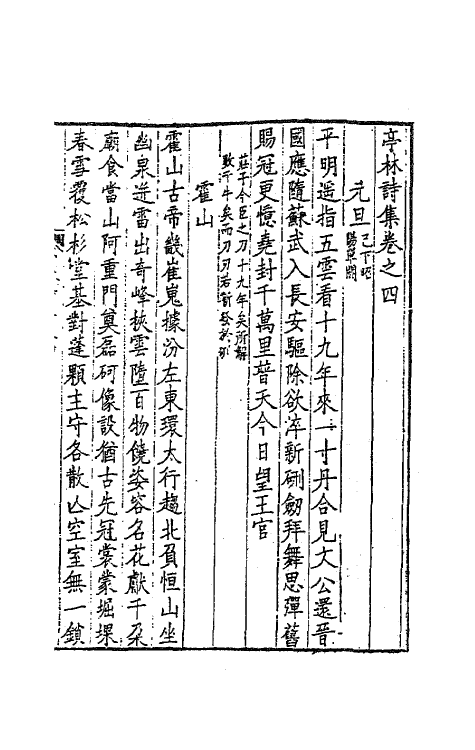 亭林詩集卷之四
元旦 已下昭陽單閼
平明遥指五雲看十九年來一寸丹合見文公還晉
國應隨蘇武入長安驅除欲淬新硎劒拜舞思彈舊
賜冠更憶堯封千萬里普天今日望王官
莊子今臣之刀十九年矣所解
數千牛矣而刀刃若新發於硎
霍山
霍山古帝畿崔嵬據汾左東環太行趨北負恒山坐
幽泉迸雷出奇峰挾雲墮百物饒姿容名花獻千朶
廟食當山阿重門奠磊砢像設猶古先冠裳蒙堀堁
春雪覆松杉堂基對蓬顆主守各散亾空室無一鎖